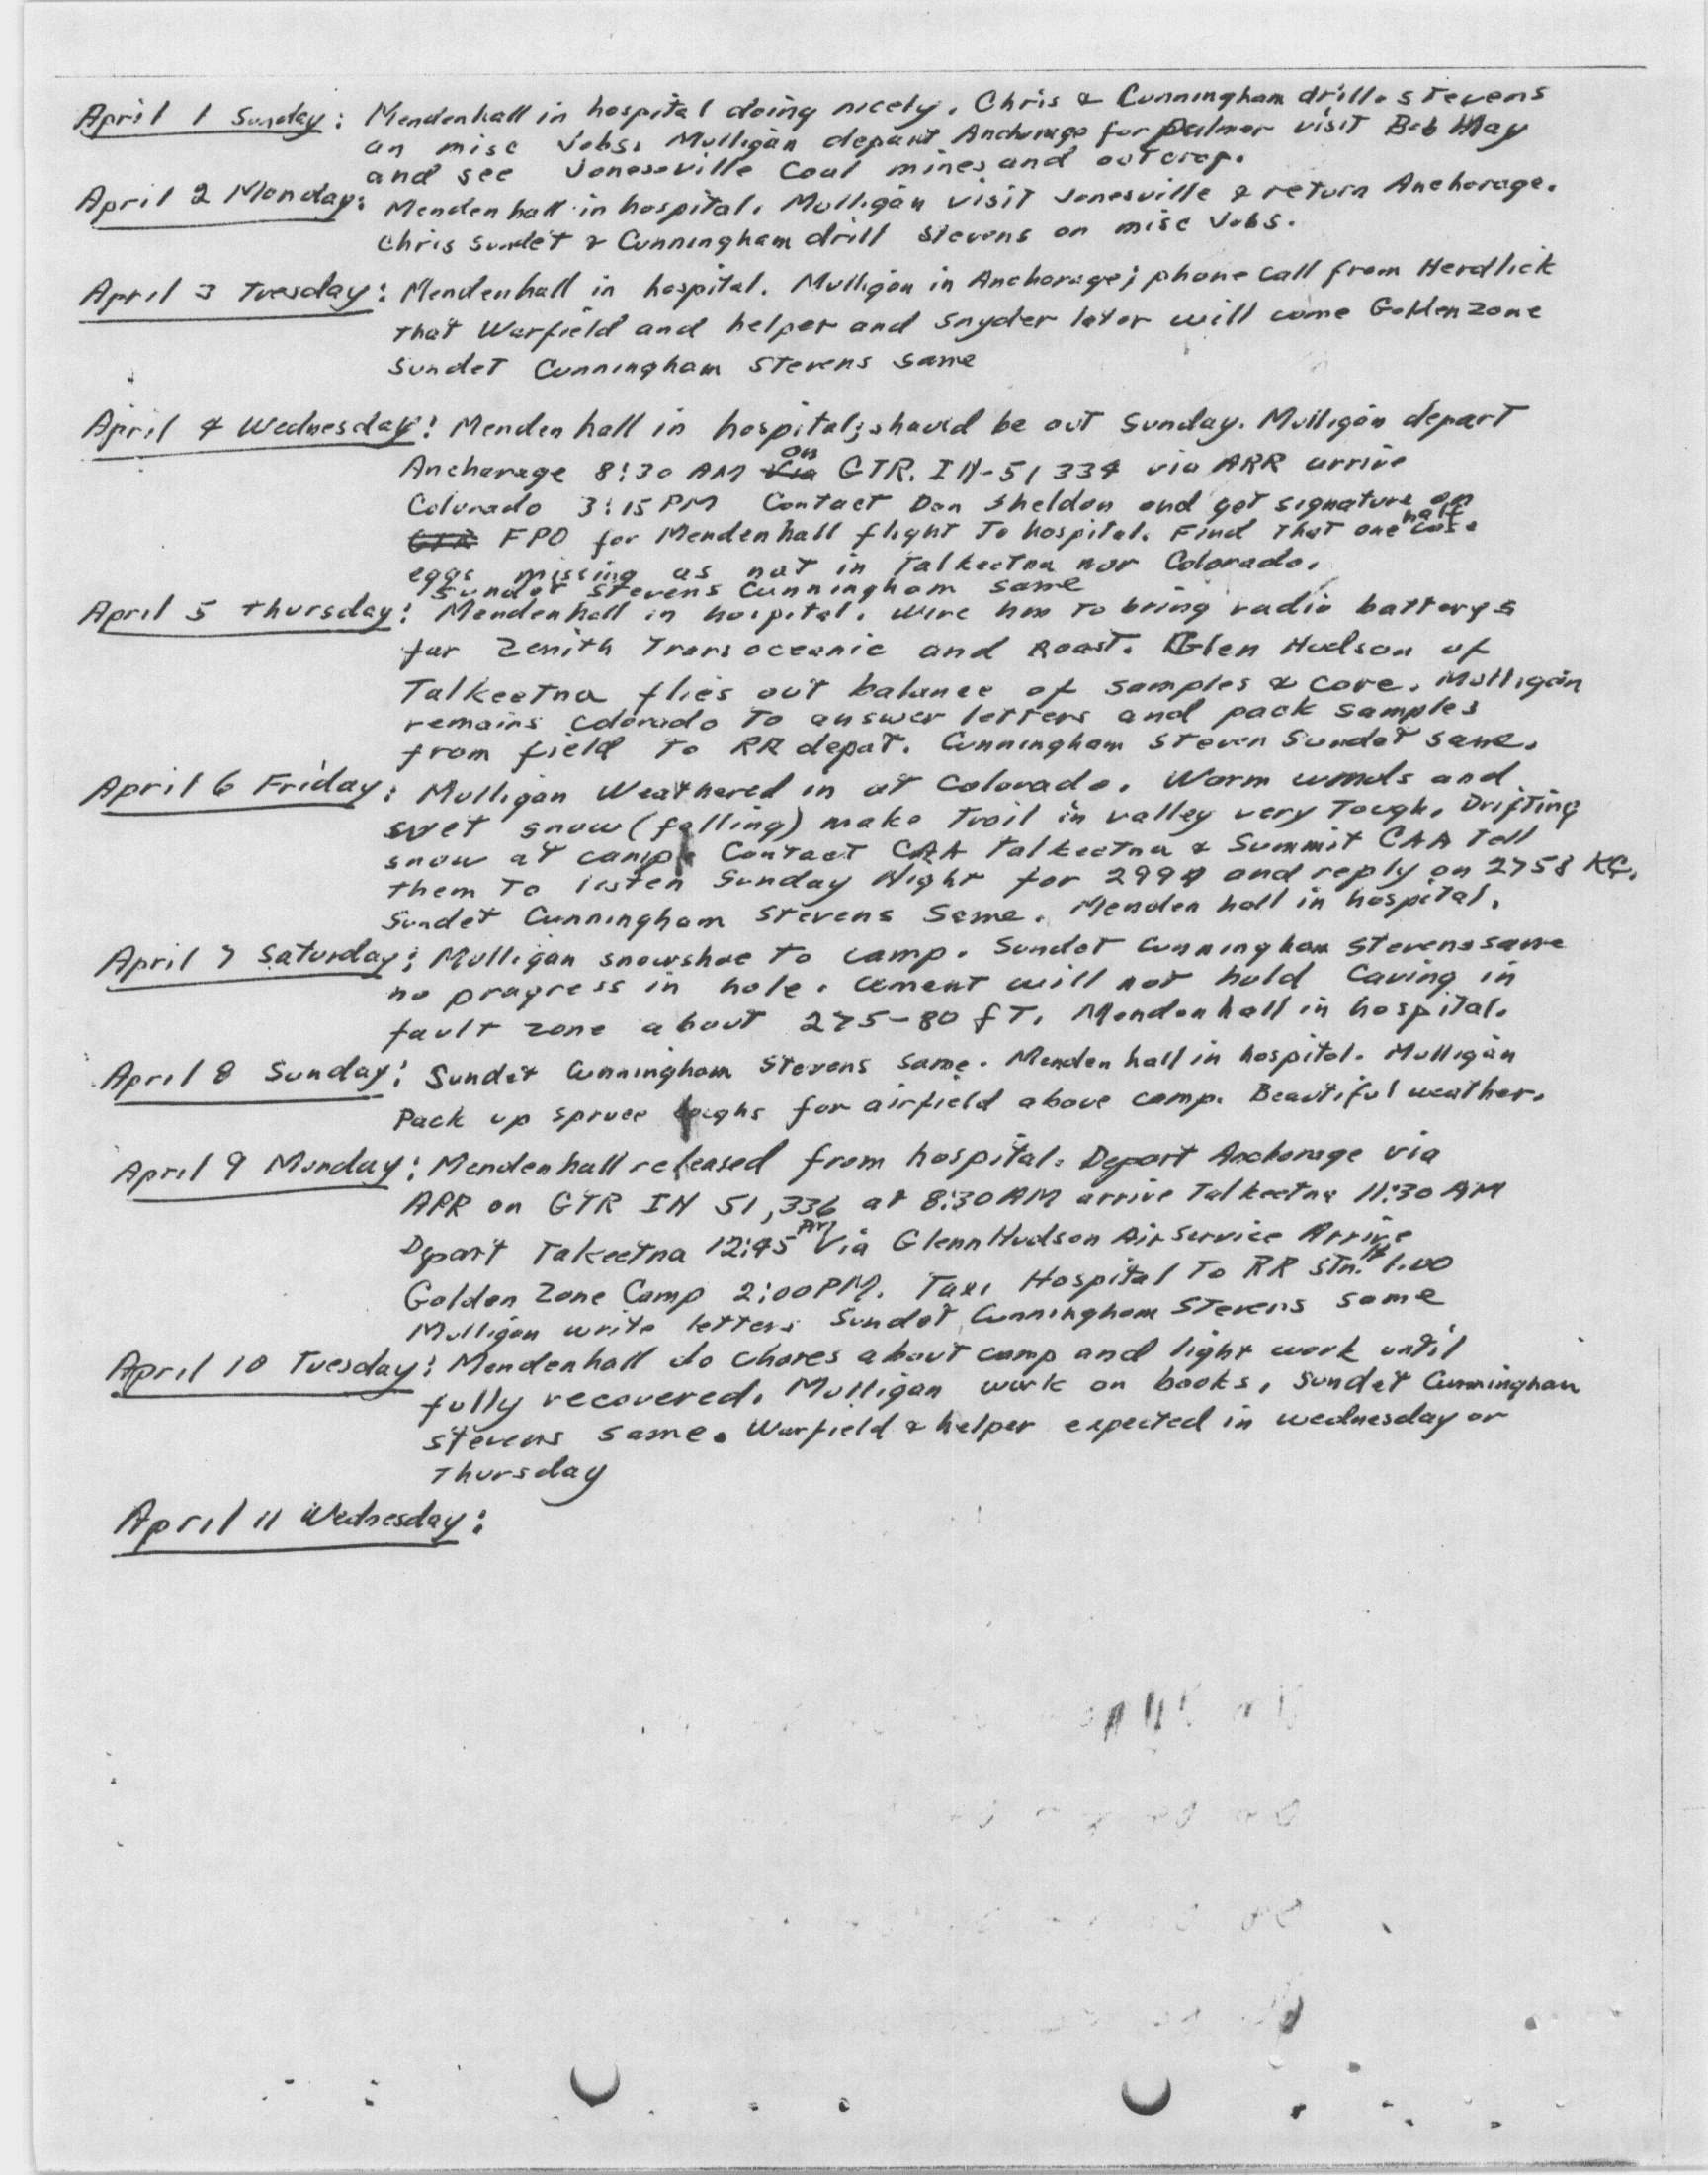 April 1 Sunday: Mendenhall in hospital doing nicely. Chris & Cunningham drill. Stevens
on misc Jobs. Mulligan depart Anchorage for Palmer visit Bob May
and see Jonesville Coal mines and outcrop.
April 2 Monday: Mendenhall in hospital. Mulligan visit Jonesville & return Anchorage.
Chris Sundet & Cunningham drill Stevens on misc Jobs.
April 3 Tuesday: Mendenhall in hospital. Mulligan in Anchorage; phone call from Herdlick
that Warfield and helper and Snyder later will come Golden Zone
Sundet Cunningham Stevens same
April 4 Wednesday: Mendenhall in hospital; should be out Sunday. Mulligan depart
Anchorage 8:30 AM via on GTR. IN-51334 via ARR arrive
Colorado 3:15 PM Contact Don Sheldon and get signature on
GTR FPO for Mendenhall flight to hospital. Find that one half case
eggs missing as not in Talkeetna nor Colorado.
Sundet Stevens Cunningham same
April 5 Thursday: Mendenhall in hospital. Wire him to bring radio batterys
for Zenith Transoceanic and Roast. Glen Hudson of
Talkeetna flies out balance of samples & core. Mulligan
remains Colorado to answer letters and pack samples
from field to RR depot. Cunningham Steven Sundet same.
April 6 Friday: Mulligan Weathered in at Colorado. Warm winds and
wet snow (falling) make trail in valley very tough. Drifting
snow at camp. Contact CAA Talkeetna & Summit CAA Tell
them to listen Sunday Night for 2994 and reply on 2758 KC.
Sundet Cunningham Stevens Same. Mendenhall in hospital.
April 7 Saturday: Mulligan snowshoe to camp. Sundet Cunningham Stevens same
no progress in hole. Cement will not hold Caving in
fault zone about 275-80 fT. Mendenhall in hospital.
April 8 Sunday: Sundet Cunningham Stevens same. Mendenhall in hospital. Mulligan
Pack up spruce boughs for airfield above camp. Beautiful weather.
April 9 Monday: Mendenhall released from hospital. Depart Anchorage via
ARR on GTR IN 51,336 at 8:30 AM arrive Talkeetna 11:30 AM
Depart Takeetna 12:45 PM Via Glenn Hudson Air Service Arrive
Golden Zone Camp 2:00 PM. Taxi Hospital To RR Stn. 1.00
Mulligan write letters Sundet Cunningham Stevens same
April 10 Tuesday: Mendenhall do chores about camp and light work until
fully recovered. Mulligan work on books. Sundet Cunningham
Stevens same. Warfield & helper expected in wednesday or
Thursday
April 11 Wednesday: